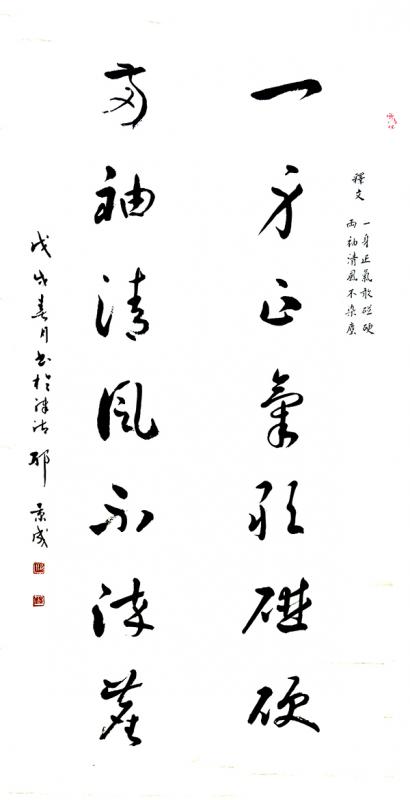 釋文
一身正氣敢碰硬
兩袖清風不染塵
一身正氣敢碰硬
兩袖清風不染塵
戊戌春月书於津沽 邢景成